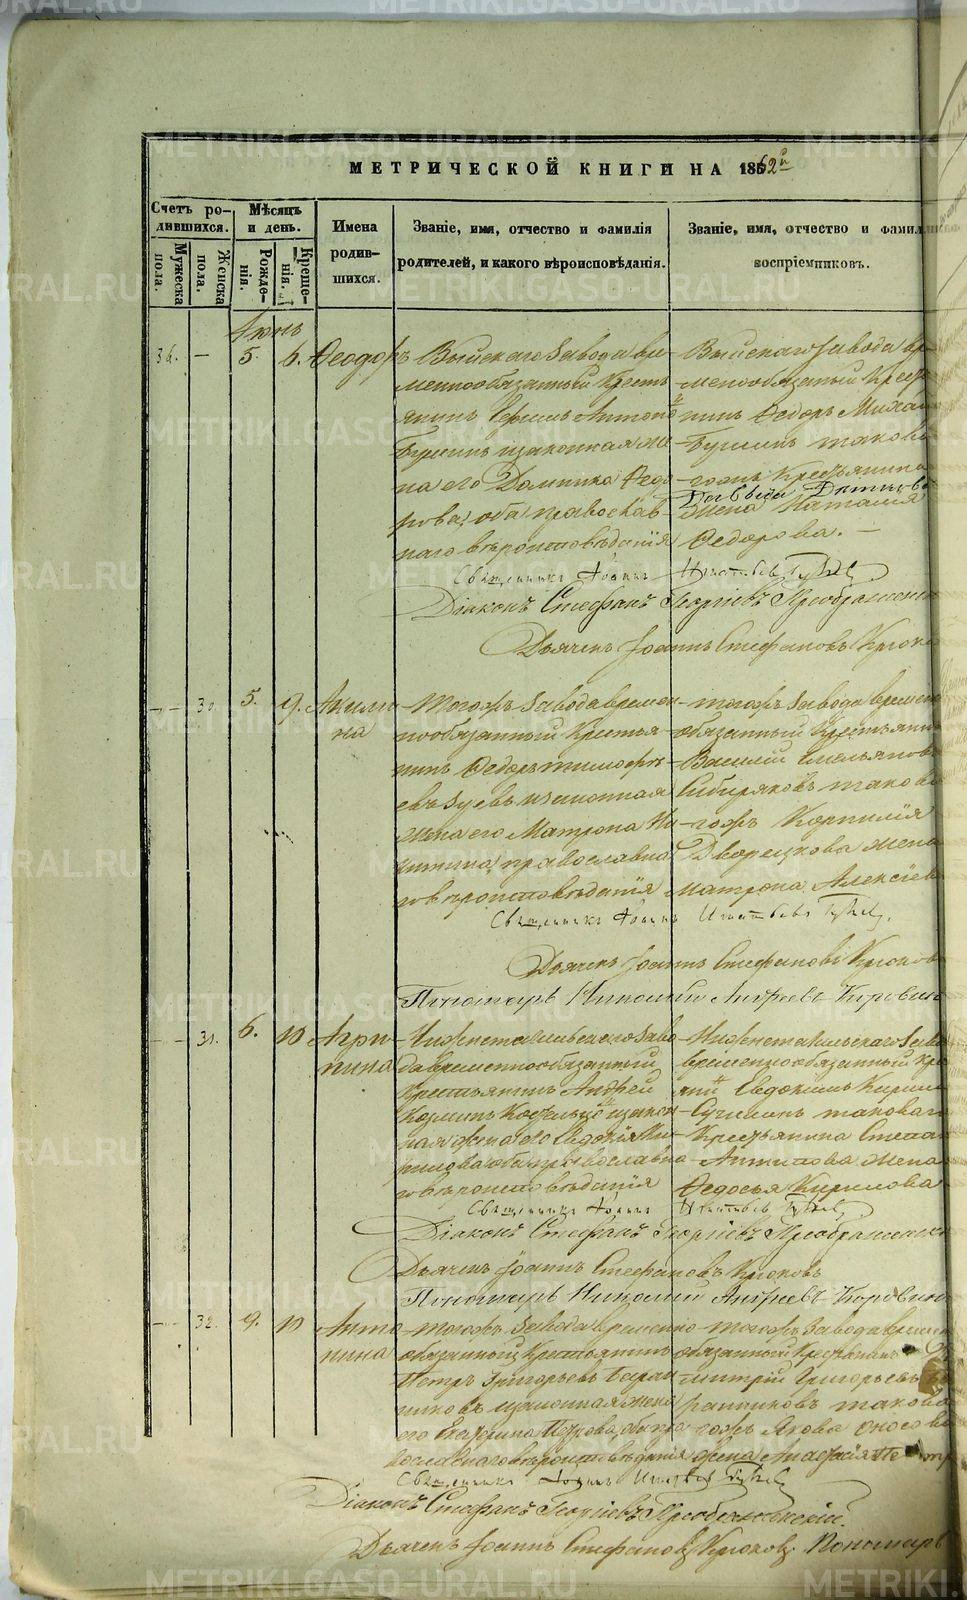 МЕТРИЧЕСКОЙ КНИГИ НА 1862й
Счетъ ро-
дившихся.
Мужеска
пола.
Женска
пола.
Мѣсяцъ
и день.
Рожде-
нія.
Креще-
нія.
Имена
родив-
шихся.
Званіе, имя, отчество и фамилія
родителей, и какого вѣроисповѣданія.
Званіе, имя, отчество и фамил
воспріемниковъ.
Іюнь
36. — 5. 6. Ѳеодоръ
Выйскаго Завода вре-
меннообязанный Кресть
янинъ Антоно
законная же
на его Домника Ѳедо
рова, оба православ
наго вѣроисповѣданія
Выйскаго Завода вр
меннообязаный Крест
нинъ Ѳедоръ Михай
такова
гожъ Крестьянина
Давыда
жена Наталія
Ѳедорова. —
Священникъ Іоаннъ Игнатьевъ
Діаконъ Стефанъ Георгіевъ Преображенск
Дьячекъ Іоаннъ Стефановъ Крюко
— 30. 5. 9. Акили
на
Тогожъ Завода времен
нообязанный Крестья
нинъ Ѳедоръ Тимофѣ
евъ Зуевъ законная
жена его Матрона Ни
китина, православна
го вѣроисповѣданія
тогожъ Завода времен
обязанный Крестьянин
Василій Емельянов
Сибиряковъ такова
гожъ Корнилія
Дворецкова жена
Матрона Алексѣев
Священникъ Іоаннъ Игнатьевъ
Дьячекъ Іоаннъ Стефановъ Крюков
Пономарь Николай Андреевъ Коровин
— 31. 6. 10 Агри
пина
Нижнетагильскаго Заво
да временнообязанный
Крестьянинъ Андрей
Козминъ закон
ная жена его Евдокія Ки
рилова оба православна
го вѣроисповѣданія
Нижнетагильскаго Заво
временнообязанный Кре
Евдокимъ Кирил
таковаго
Крестьянина Степан
Антипова жена
Ѳедосья Кирилова
Священникъ Іоаннъ Игнатьевъ
Діаконъ Стефанъ Георгіевъ Преображенск
Дьячекъ Іоаннъ Стефановъ Крюковъ
Пономарь Николай Андреевъ Коровин
— 32. 9. 10 Анто
нина
тогожъ Завода временно
обязанный Крестьянинъ
Петръ Григорьевъ Баран
никовъ законная жена
его Екатерина Петрова, оба пра
вославнаго вѣроисповѣданія
тогожъ Завода времен
обязанный Крестьянинъ
митрій Григорьевъ
ранниковъ такова
гожъ Якова
жена Анафасія
Священникъ Іоаннъ Игнатьевъ
Діаконъ Стефанъ Георгіевъ Преображенскій.
Дьячекъ Іоаннъ Стефановъ Крюковъ. Пономарь